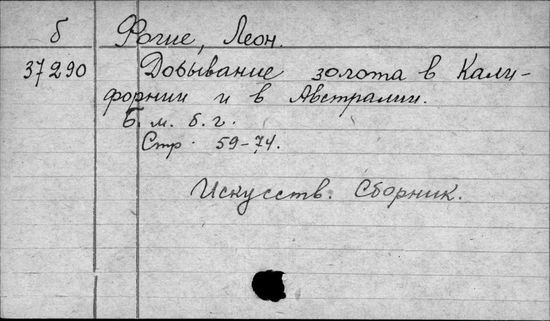 б Фогие, Леон.
37290 Добывание золота в Кали-
форнии и в Австралии.
Б. м. б. г.
Стр. 59-74.
Искусств. Сборник.